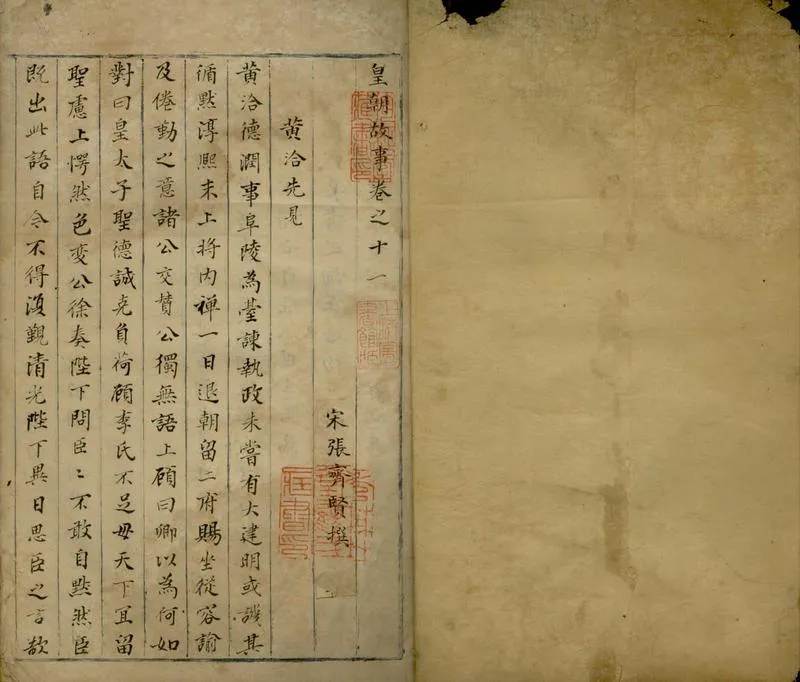 皇朝故事卷之十一
宋張齊賢撰
黃洽先見
黃洽德潤事阜陵為臺諫執政未嘗有大建明或譏其
循黙淳熙末上將內禪一日退朝留二府賜坐從容諭
及倦勤之意諸公交贊公獨無語上顧曰卿以為何如
對曰皇太子聖德誠克負荷顧李氏不足毋天下冝留
聖慮上愕然色變公徐奏陛下問臣〻不敢自黙然臣
既出此語自今不得復覲清光陛下異日思臣之言欲